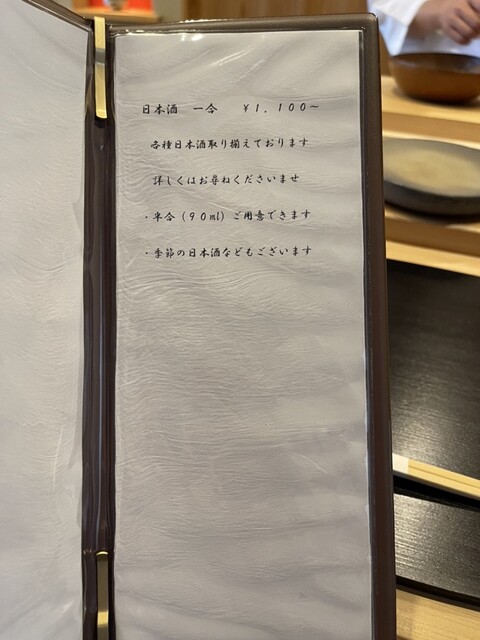 日本酒　一合　　￥１，１００～
各種日本酒取り揃えております
詳しくはお尋ねくださいませ
・半合（９０ml）ご用意できます
・季節の日本酒などもございます